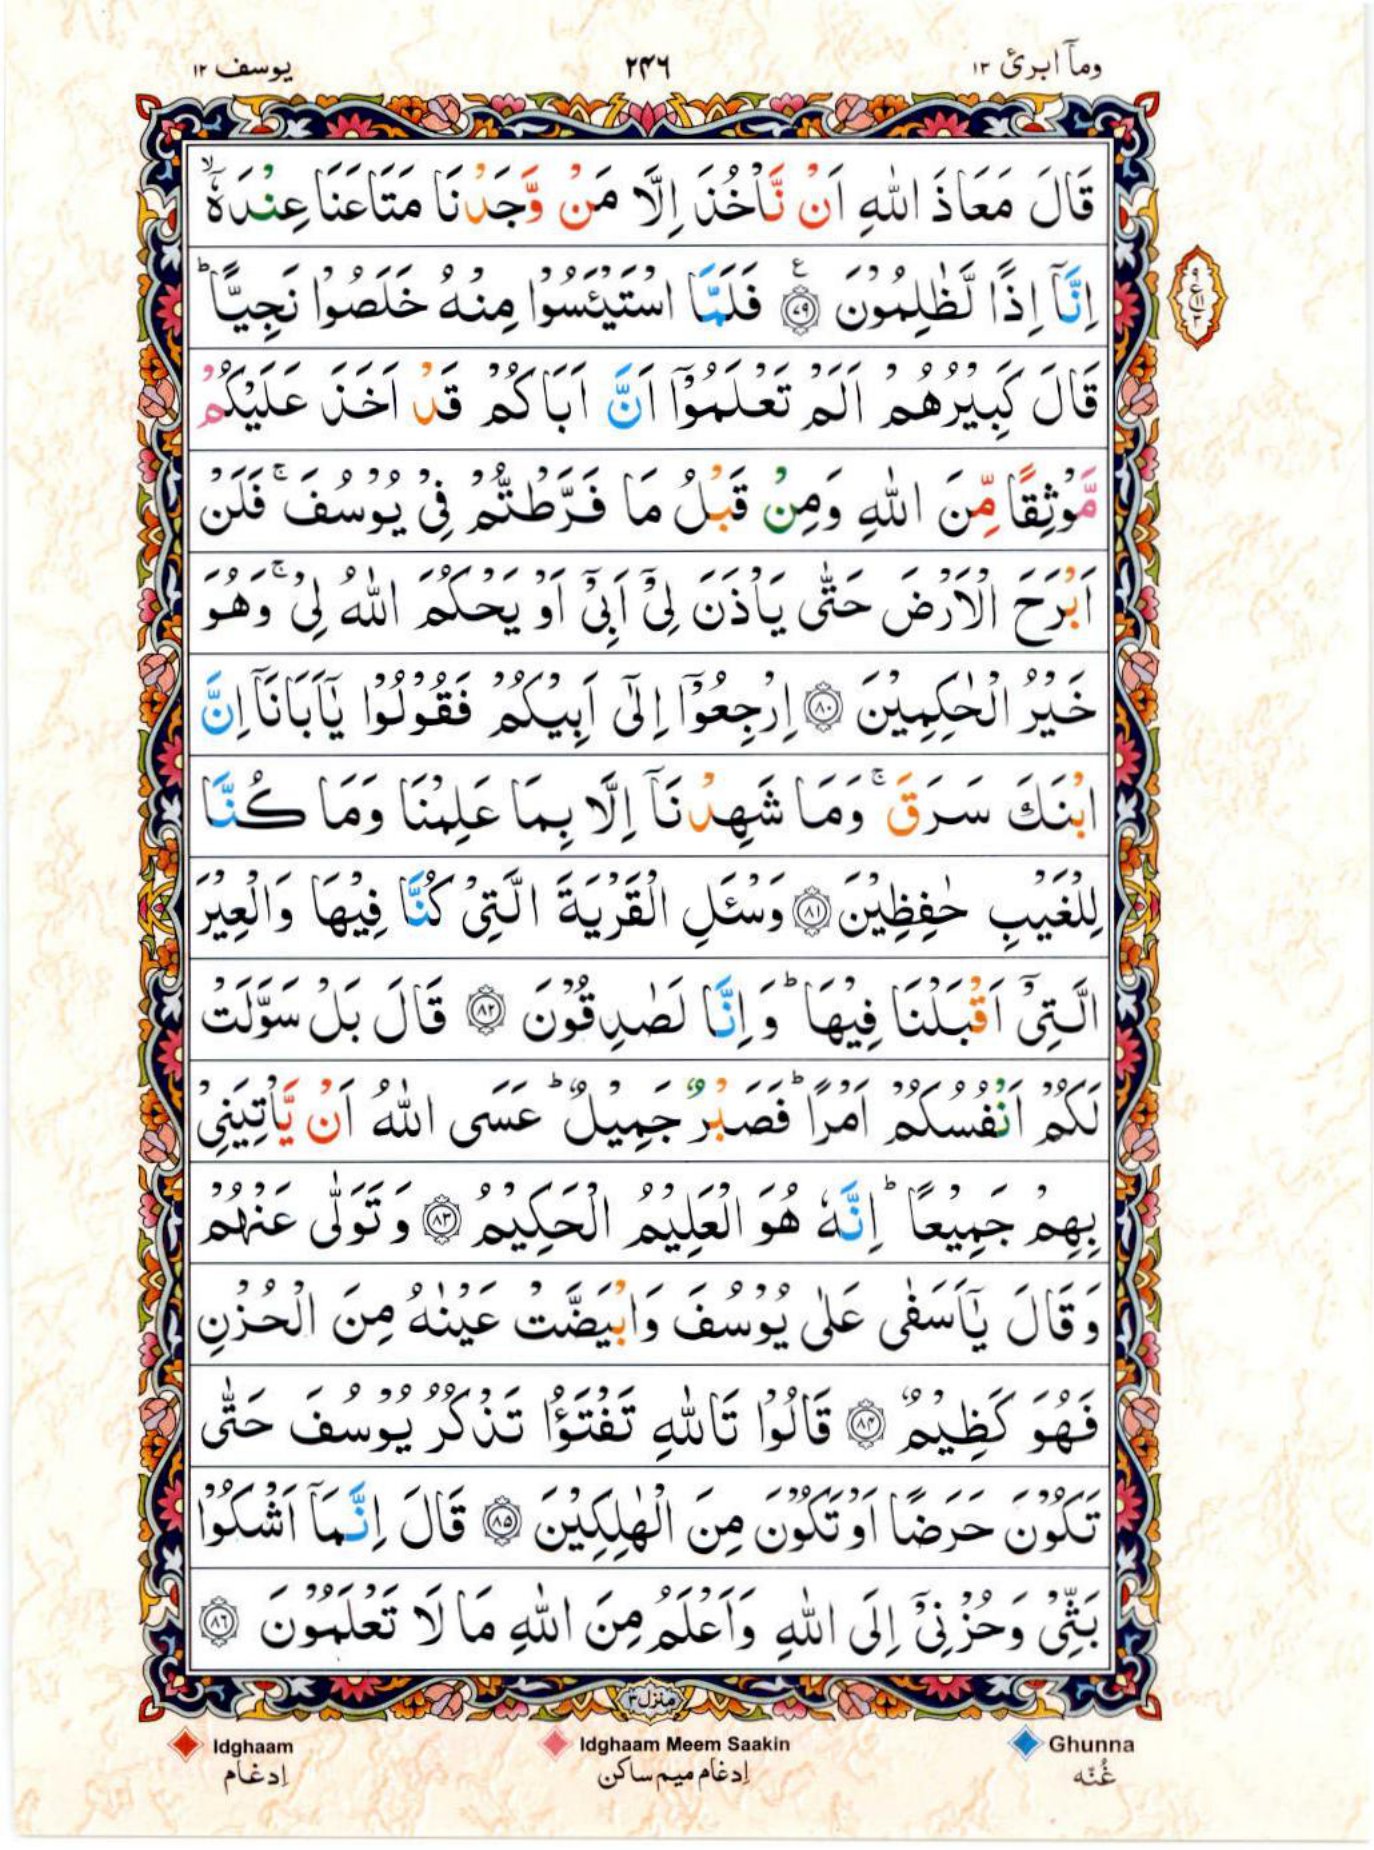 وماۤ ابرئ ۱۳
۲۴۶
یوسف ۱۲
قَالَ مَعَاذَ اللّٰهِ اَنْ نَّاْخُذَ اِلَّا مَنْ وَّجَدْنَا مَتَاعَنَا عِنْدَهٗۤ ۙ
اِنَّاۤ اِذًا لَّظٰلِمُوْنَ ﴿۷۹﴾ ع فَلَمَّا اسْتَیْـَٔسُوْا مِنْهُ خَلَصُوْا نَجِیًّا ؕ
۹
ع ۱۱
۳
قَالَ كَبِیْرُهُمْ اَلَمْ تَعْلَمُوْۤا اَنَّ اَبَاكُمْ قَدْ اَخَذَ عَلَیْكُمْ
مَّوْثِقًا مِّنَ اللّٰهِ وَمِنْ قَبْلُ مَا فَرَّطْتُّمْ فِیْ یُوْسُفَ ۚ فَلَنْ
اَبْرَحَ الْاَرْضَ حَتّٰی یَاْذَنَ لِیْۤ اَبِیْۤ اَوْ یَحْكُمَ اللّٰهُ لِیْ ۚ وَهُوَ
خَیْرُ الْحٰكِمِیْنَ ﴿۸۰﴾ اِرْجِعُوْۤا اِلٰۤی اَبِیْكُمْ فَقُوْلُوْا یٰۤاَبَانَاۤ اِنَّ
ابْنَكَ سَرَقَ ۚ وَمَا شَهِدْنَاۤ اِلَّا بِمَا عَلِمْنَا وَمَا كُنَّا
لِلْغَیْبِ حٰفِظِیْنَ ﴿۸۱﴾ وَسْـَٔلِ الْقَرْیَةَ الَّتِیْ كُنَّا فِیْهَا وَالْعِیْرَ
الَّتِیْۤ اَقْبَلْنَا فِیْهَا ؕ وَاِنَّا لَصٰدِقُوْنَ ﴿۸۲﴾ قَالَ بَلْ سَوَّلَتْ
لَكُمْ اَنْفُسُكُمْ اَمْرًا ؕ فَصَبْرٌ جَمِیْلٌ ؕ عَسَی اللّٰهُ اَنْ یَّاْتِیَنِیْ
بِهِمْ جَمِیْعًا ؕ اِنَّهٗ هُوَ الْعَلِیْمُ الْحَكِیْمُ ﴿۸۳﴾ وَتَوَلّٰی عَنْهُمْ
وَقَالَ یٰۤاَسَفٰی عَلٰی یُوْسُفَ وَابْیَضَّتْ عَیْنٰهُ مِنَ الْحُزْنِ
فَهُوَ كَظِیْمٌ ﴿۸۴﴾ قَالُوْا تَاللّٰهِ تَفْتَؤُا تَذْكُرُ یُوْسُفَ حَتّٰی
تَكُوْنَ حَرَضًا اَوْ تَكُوْنَ مِنَ الْهٰلِكِیْنَ ﴿۸۵﴾ قَالَ اِنَّمَاۤ اَشْكُوْا
بَثِّیْ وَحُزْنِیْۤ اِلَی اللّٰهِ وَاَعْلَمُ مِنَ اللّٰهِ مَا لَا تَعْلَمُوْنَ ﴿۸۶﴾
منزل ۳
Idghaam Idghaam Meem Saakin Ghunna
اِدغام اِدغام میم ساکن غُنّه